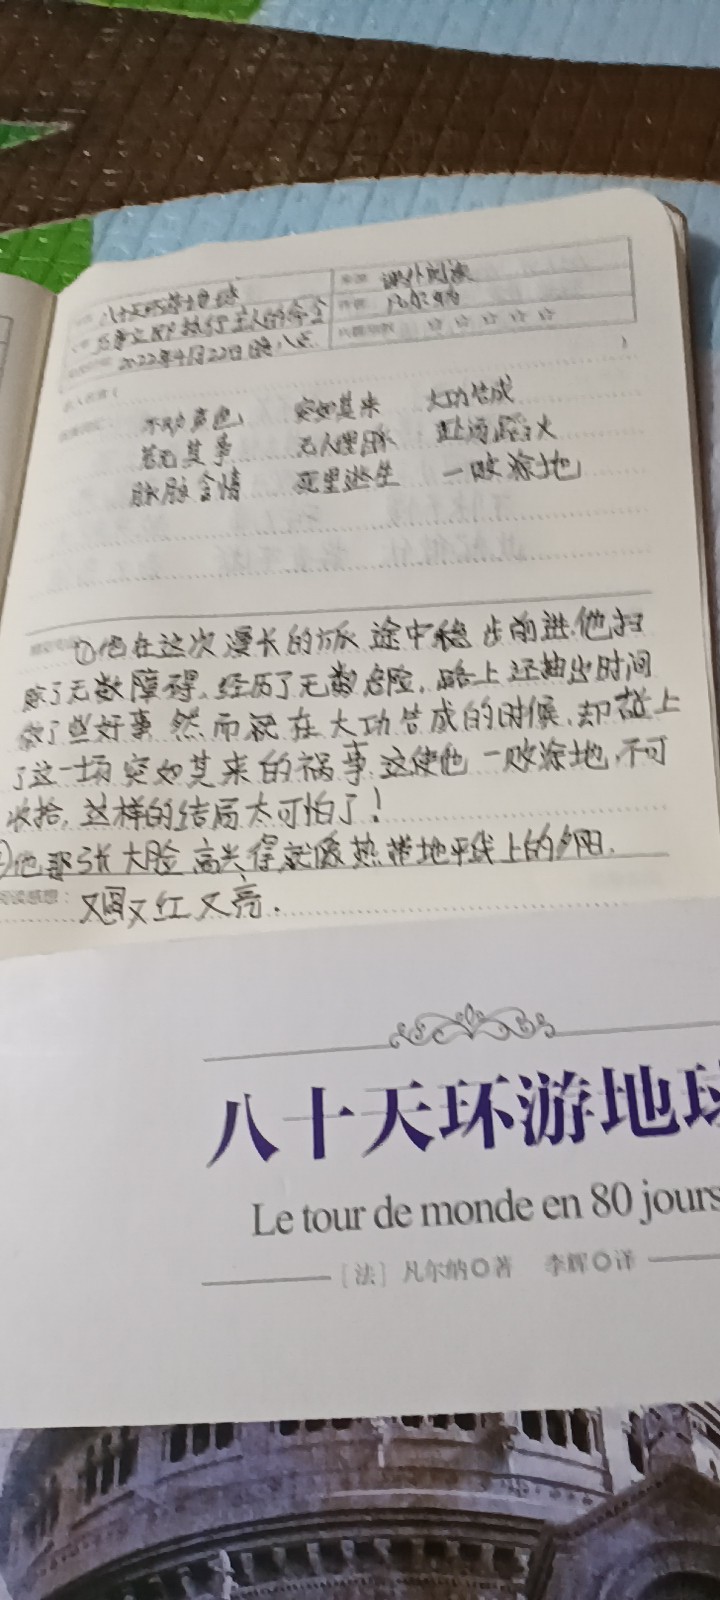 八十天环游地球
课外阅读
万事立即执行主人的命令
凡尔纳
2022年4月22日晚八点
☆ ☆ ☆ ☆ ☆
不动声色 突如其来 大功告成
若无其事 无人理睬 赴汤蹈火
脉脉含情 死里逃生 一败涂地
①他在这次漫长的旅途中稳步前进.他扫
除了无数障碍.经历了无数危险,路上还抽出时间
做了些好事 然而就在大功告成的时候.却碰上
了这一场突如其来的祸事.这使他一败涂地,不可
收拾,这样的结局太可怕了!
②他那张大脸 高兴得就像热带地平线上的夕阳.
阅读感想: 又圆又红又亮.
八十天环游地球
Le tour de monde en 80 jours
[法] 凡尔纳◎著 李辉◎译